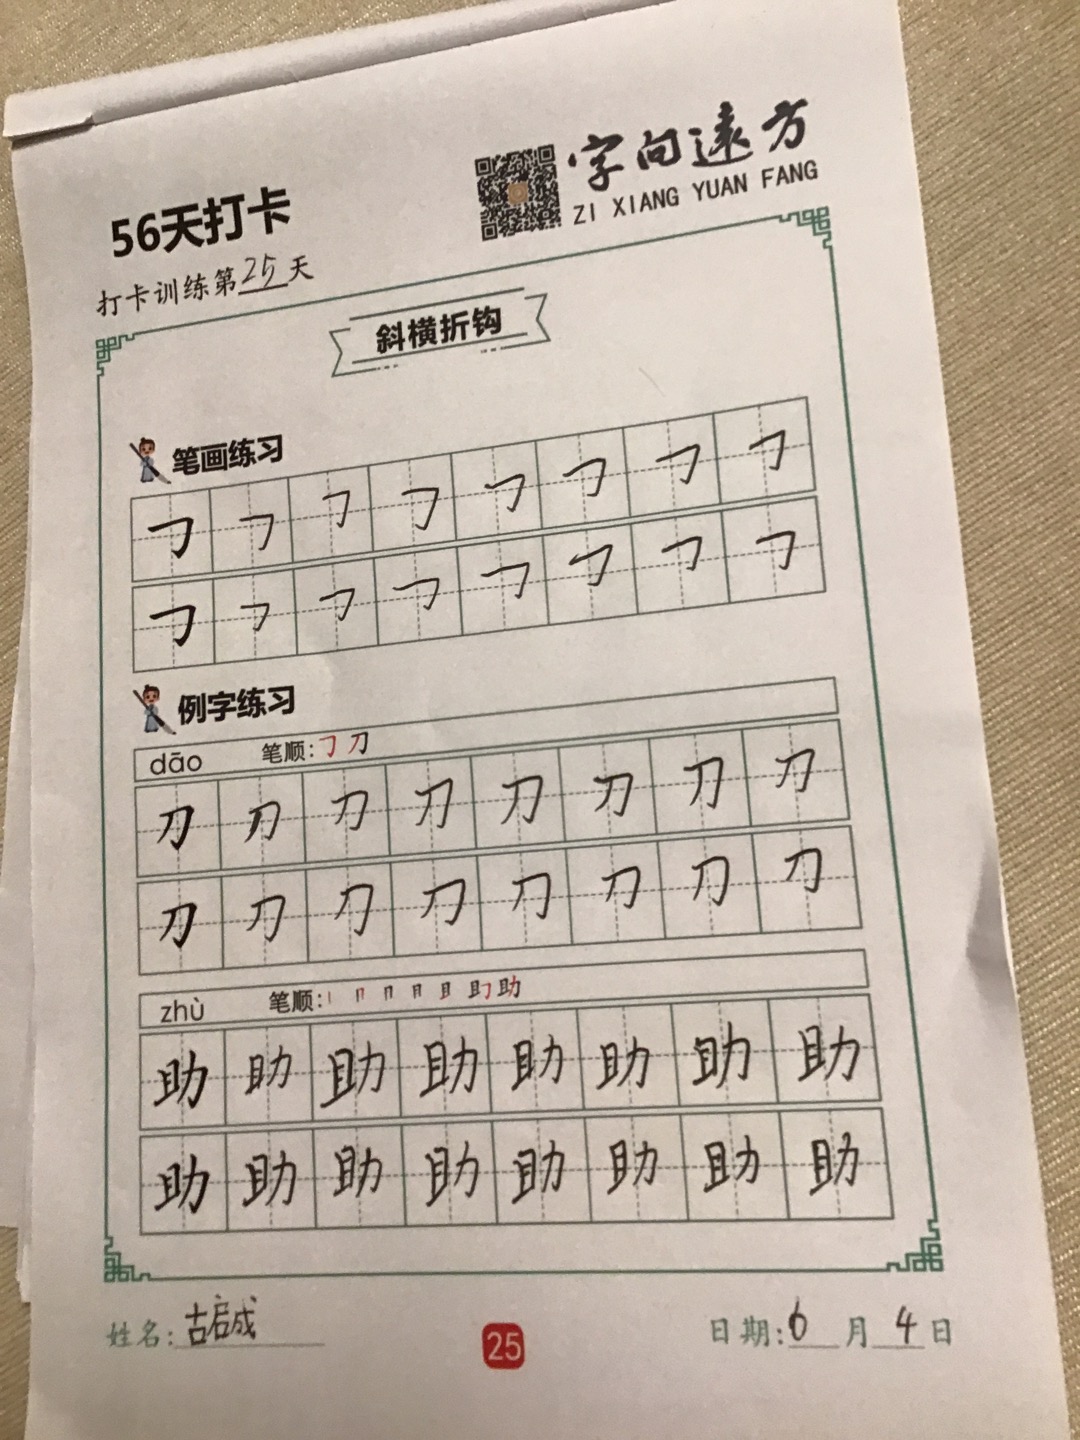 字向远方
ZI XIANG YUAN FANG
56天打卡
打卡训练第25天
斜横折钩
笔画练习
㇆ ㇆ ㇆ ㇆ ㇆ ㇆ ㇆ ㇆
㇆ ㇆ ㇆ ㇆ ㇆ ㇆ ㇆ ㇆
例字练习
dāo 笔顺:㇆ 刀
刀 刀 刀 刀 刀 刀 刀 刀
刀 刀 刀 刀 刀 刀 刀 刀
zhù 笔顺:丨 冂 冂 月 且 助 助
助 助 助 助 助 助 助 助
助 助 助 助 助 助 助 助
姓名:古启成
25
日期:6月4日